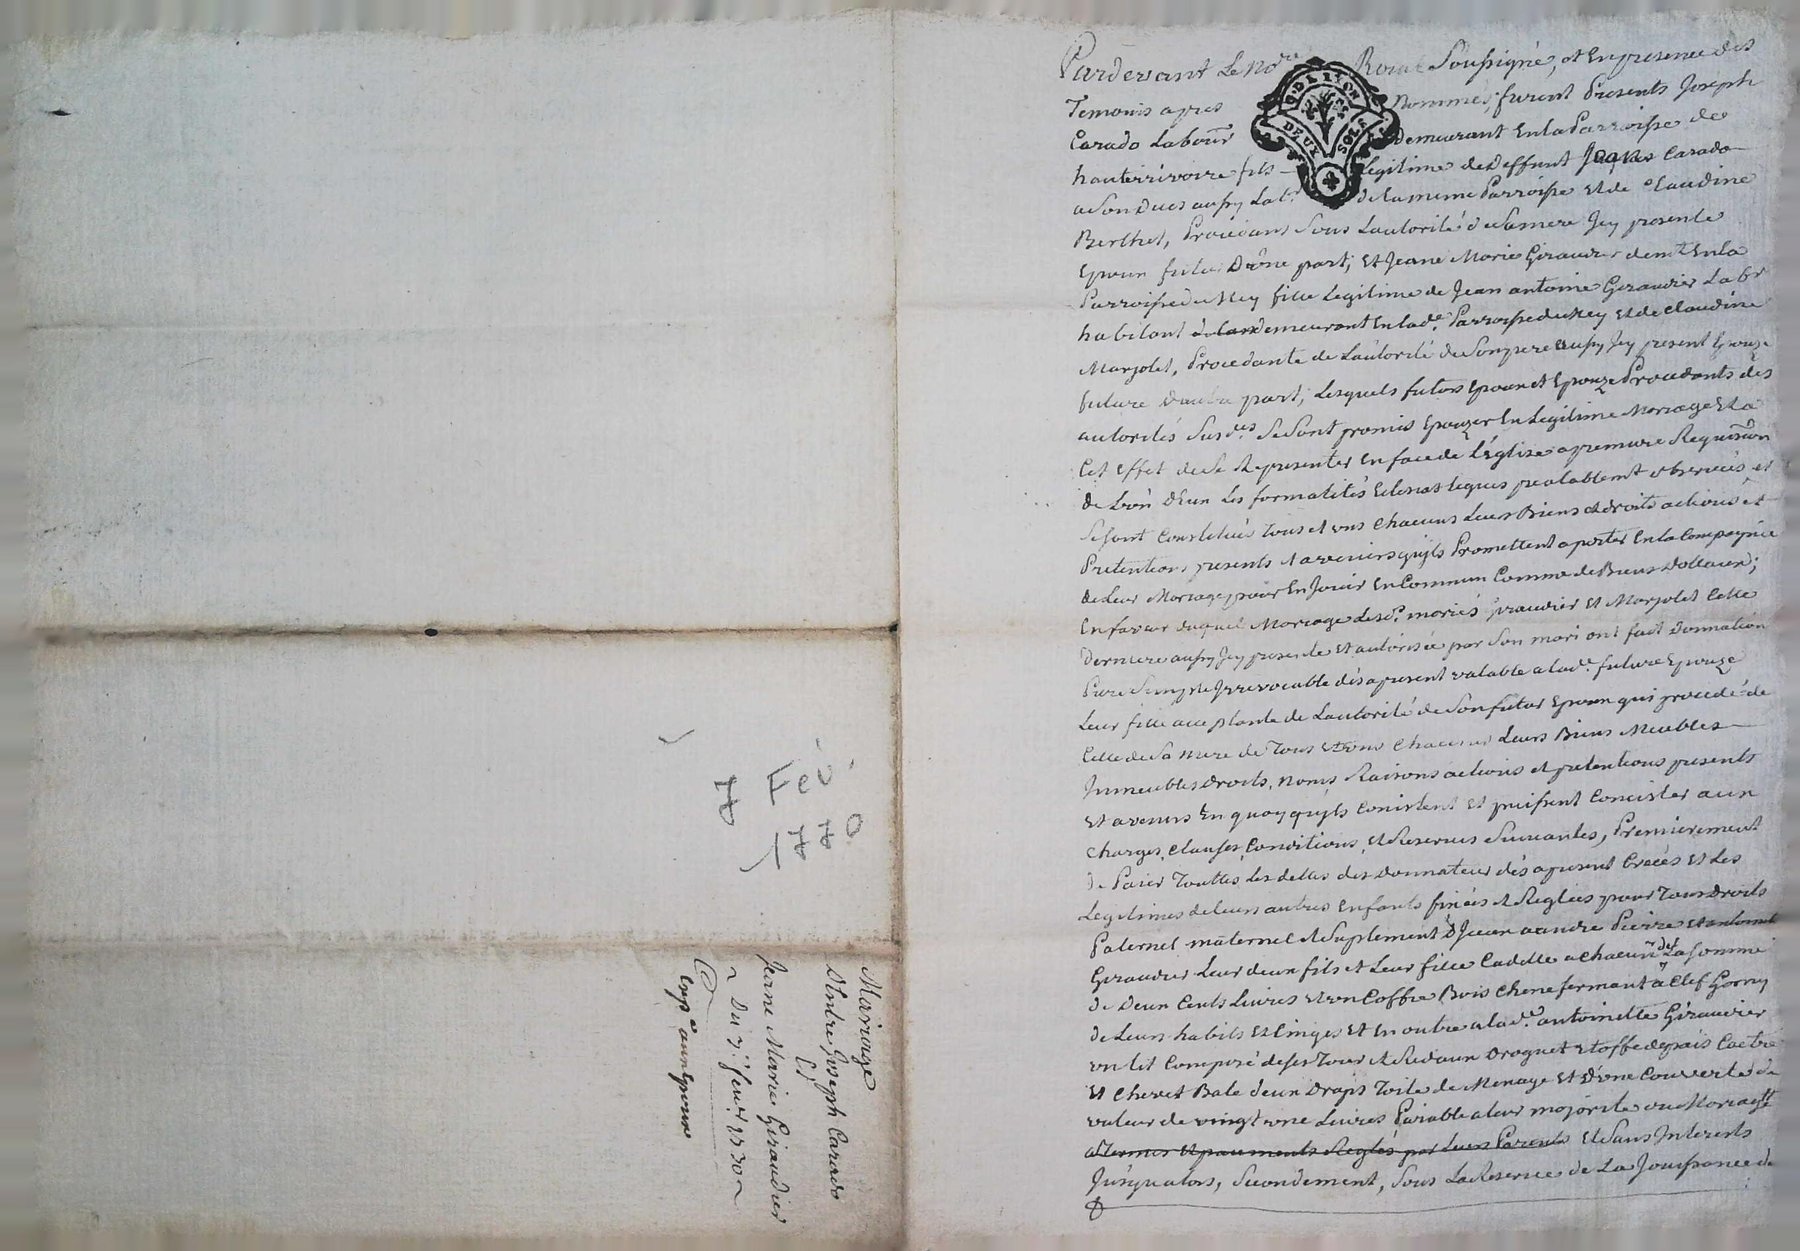 Pardevant Le No.re Royal Soussigné, et En presence des
Temoins apres Nommés, furent Presents Joseph
Carado Labour Demeurant En la Parroisse de
hauterrivoire fils Legitime de Deffunt Jaques Carado
de la meme Parroisse Et de Claudine
Berthet, Procedant Sous Lautorité de Sa mere Jcy presente
Epoux futur D'une part; Et Jeane Marie Giraudier dem.t En la
Parroisse de Mey fille Legitime de Jean antoine Giraudier Lab.r
habitant demeurant En lad.e Parroisse de Mey et de Claudine
Marjolet, Procedante de Lautorité de Son pere aussy Jcy present Epouze
future D'autre part; Lesquels futurs Epoux et Epouze Procedants des
autorités Susd.es Se Sont promis Epouzer En Legitime Mariage Et a
Cet Effet de Se Representer En face de L'Eglise a premiere Requisition
de L'un D'Eux Les formalités Eclesiastiques prealablem.t observées et
Se Sont Constitués Tous et uns Chacuns Leurs Biens et droits actions et
Pretentions presents et avenirs qu'ils Promettent aporter En la Compagnie
de Leur Mariage, pour En Jouir En Commun Comme de Biens Dottaux;
En faveur duquel Mariage Lesd. mariés Giraudier Et Marjolet Cette
Derniere aussy Jcy presente Et autorisée par Son mari ont fait Donnation
Pure Simple Jrrevocable dés apresent valable a lad.e future Epouze
Leur fille acceptante de Lautorité de Son futur Epoux qui procede de
Celle de Sa Mere de Tous Et uns Chacuns Leurs Biens Meubles
Jmmeubles Droits, Noms Raisons actions et pretentions presents
Et avenirs En quoy qu'ils Consistent Et puissent Consister aux
Charges, Clauses, Conditions, Et Reserves Suivantes, Premierement
de Paier Touttes Les dettes des Donnateurs dés apresent Creées Et Les
Legitimes de Leurs autres Enfants fixées et Reglées pour Tous Droits
Paternel maternel et Suplement a Jean andré Pierre et antoinette
Giraudier Leur deux fils et Leur fille Cadette a Chacun des La Somme
de Deux Cents Livres et un Coffre Bois Chene fermant a Clef Garny
de Leurs habits Et Linges Et En outre a lad.e antoinette Giraudier
un Lit Composé de Ses Tour et Rideaux Droguet Etoffe de païs
Et Chevet Bale deux Draps Toile de Menage Et D'une Couverte de
valeur de vingt une Livres Paiable a leur majorité ou Mariage
a Termes Et paiements Reglés par Leurs Parents Et Sans Interests
Jusqu'alors, Secondement, Sous La Reserve de La Jouissance de
Fev
Mariage
D'Entre Joseph Carado
Et
Jeane Marie Giraudier
Du 7.e fev.r 1730